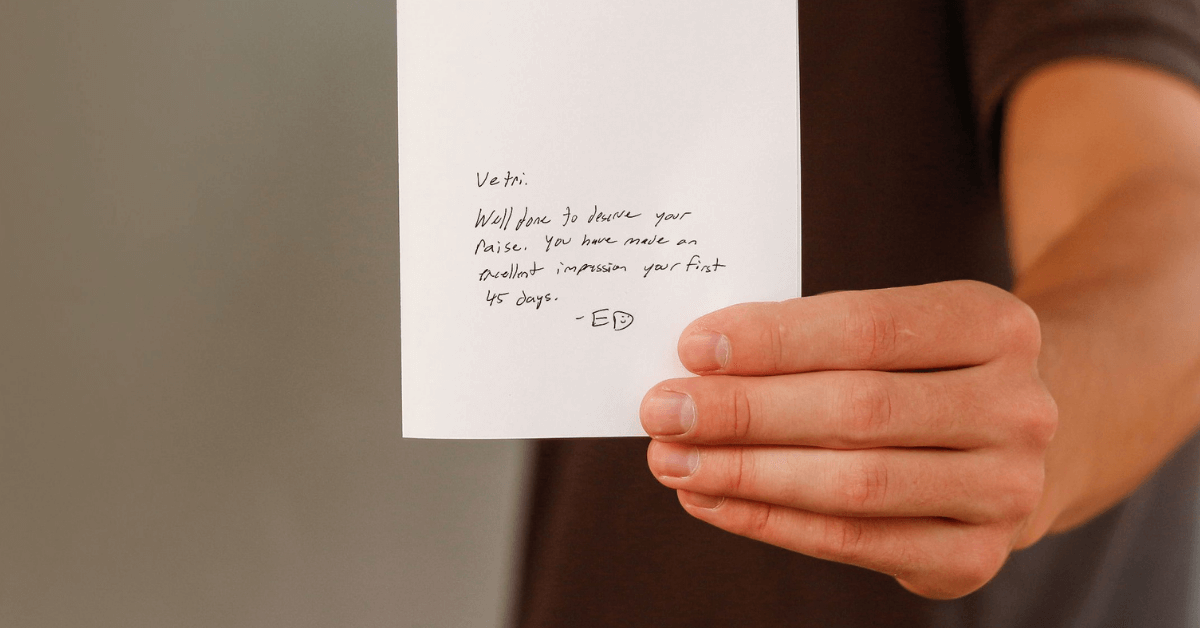 Vetri.
Well done to deserve your
raise. You have made an
excellent impression your first
45 days.
- ED